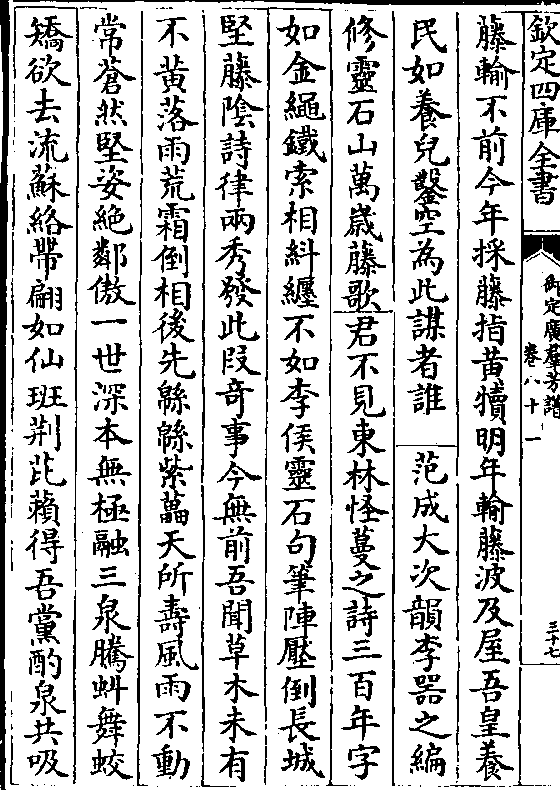 欽定四庫全書
御定廣羣芳譜
卷八十一
三十七
藤輸不前今年採藤指黃犢明年輸藤波及屋吾皇養
民如養兒鑿空為此謀者誰 范成大次韻李器之編
修靈石山萬歲藤歌君不見東林怪蔓之詩三百年字
如金繩鐵索相糾纒不如李侯靈石句筆陣壓倒長城
堅藤陰詩律兩秀發此段奇事今無前吾聞草木未有
不黃落雨荒霜倒相後先緜緜紫藟天所壽風雨不動
常蒼然堅姿絶鄰傲一世深本無極融三泉騰虯舞蛟
矯欲去流蘇絡帶翩如仙班荆茈藾得吾黨酌泉共吸